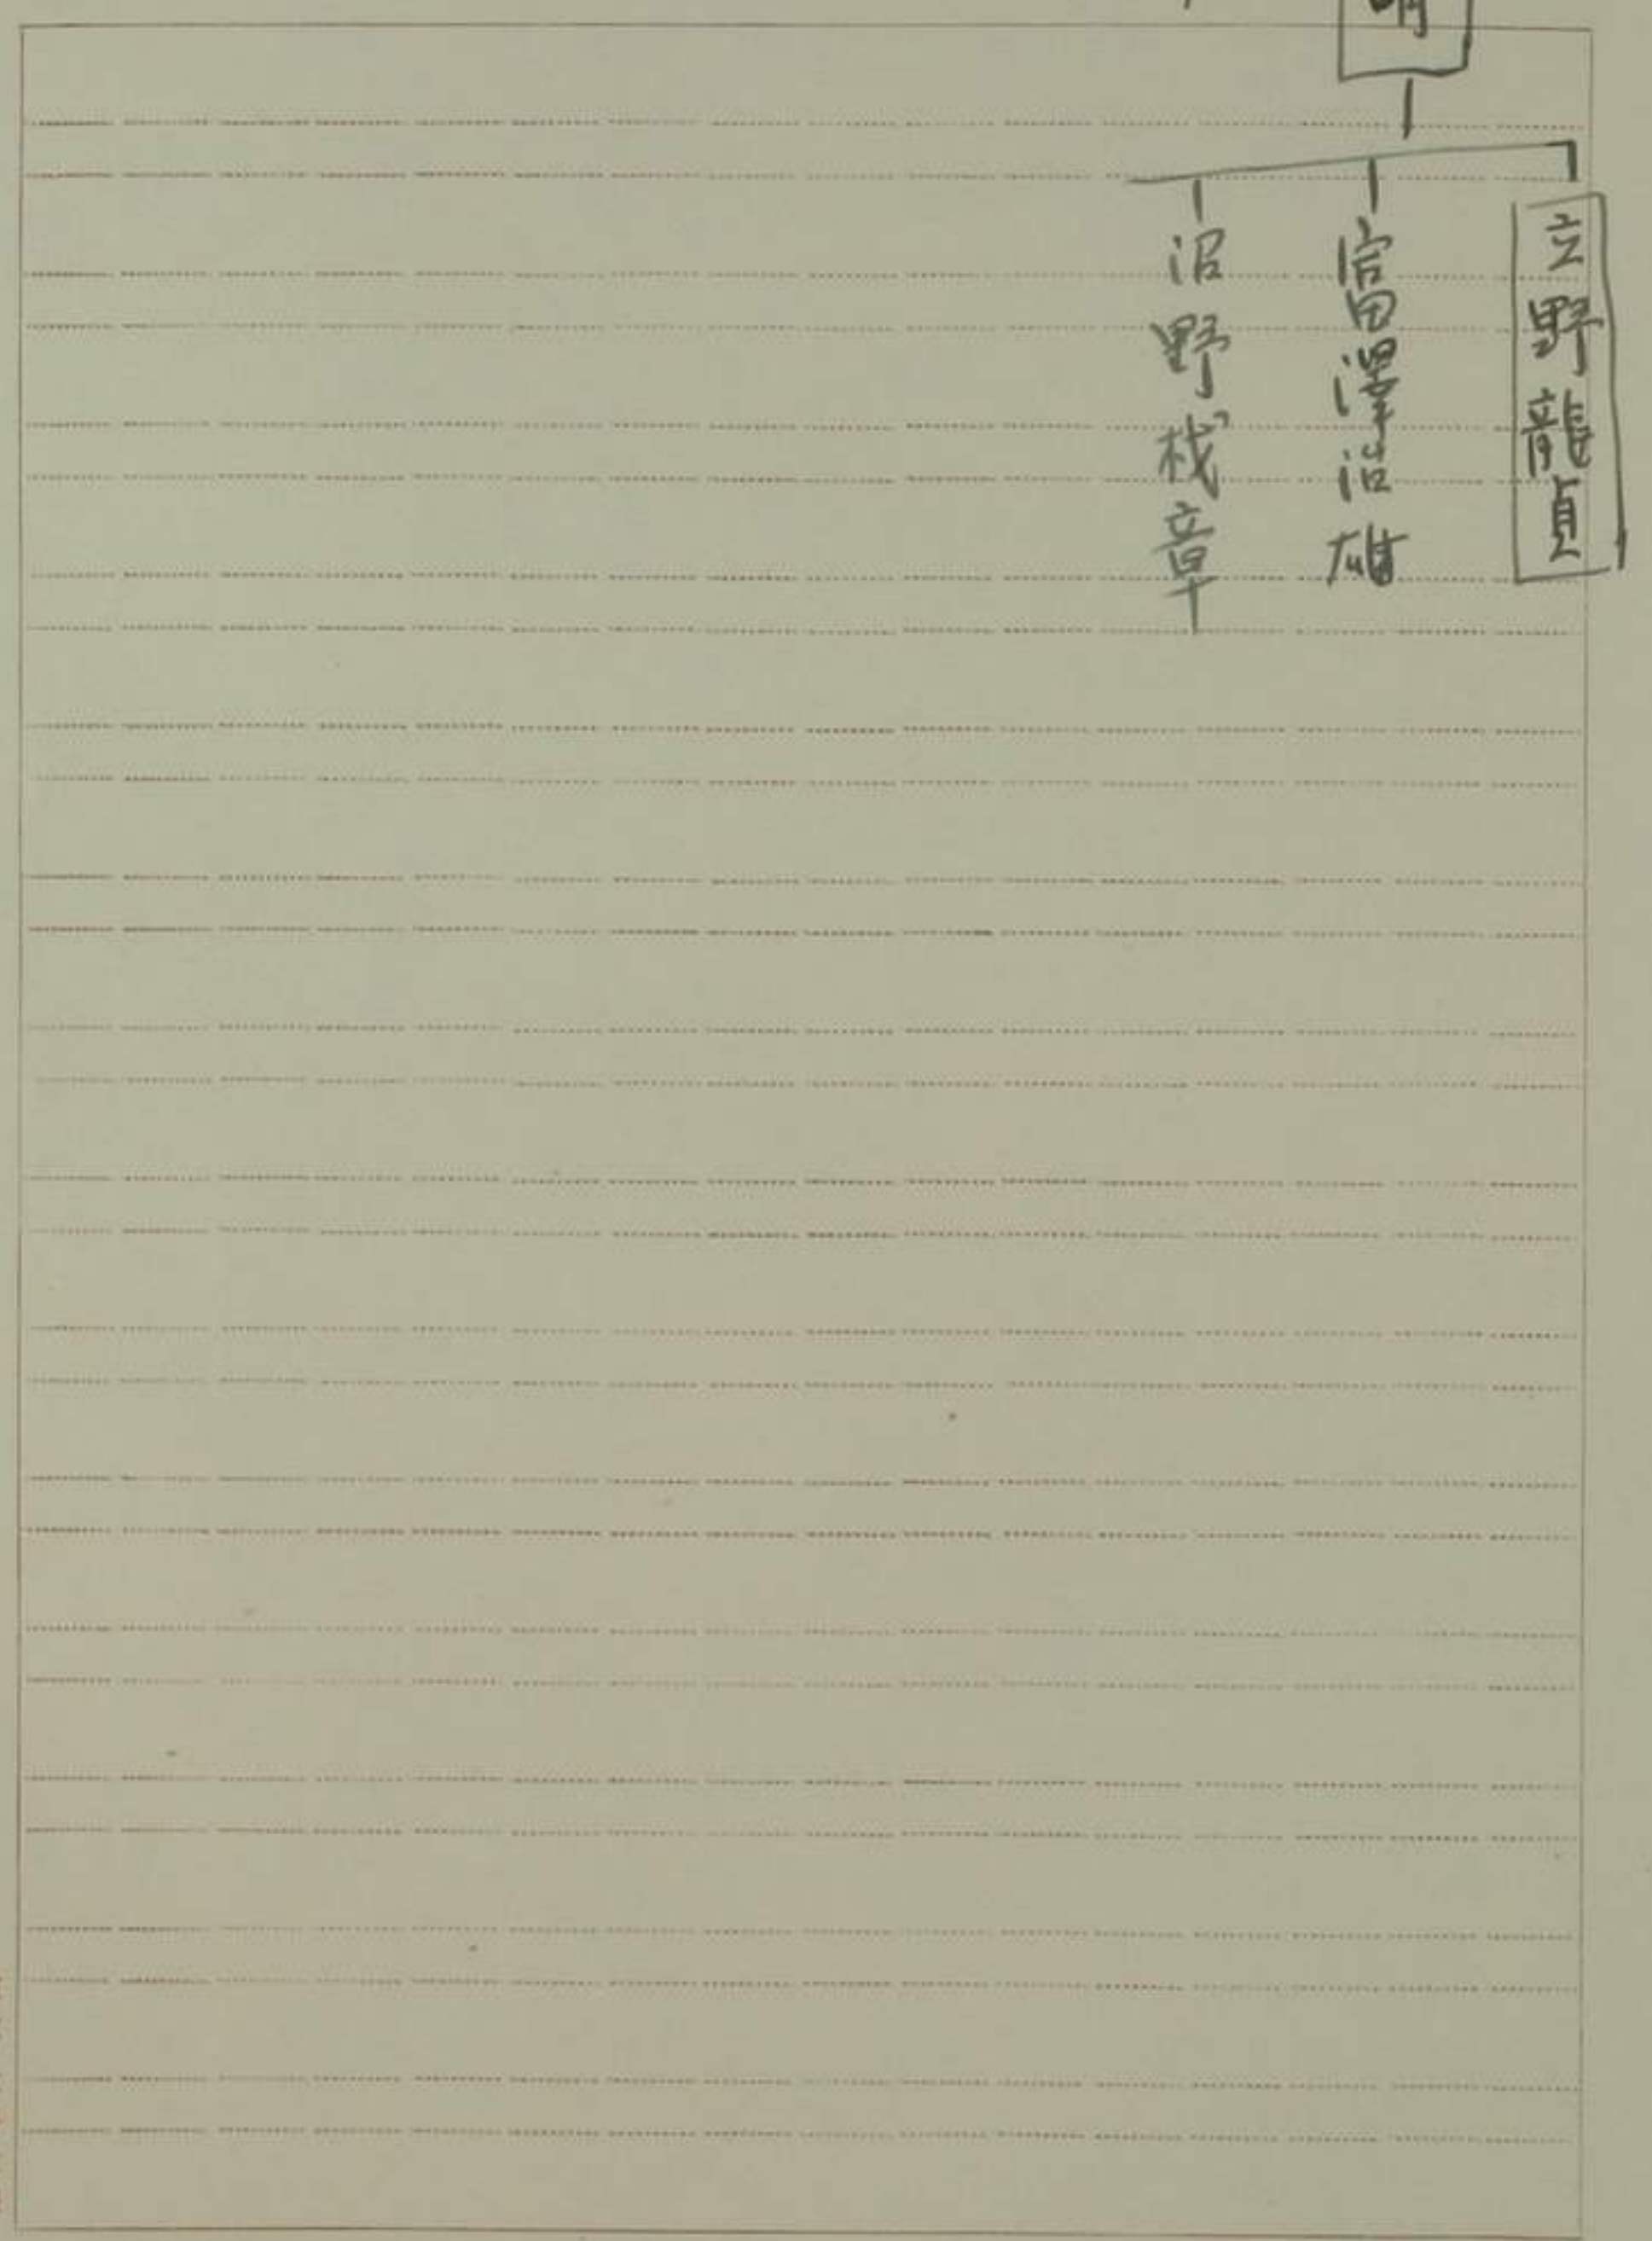 立野龍貞
富澤治雄
沼野機章